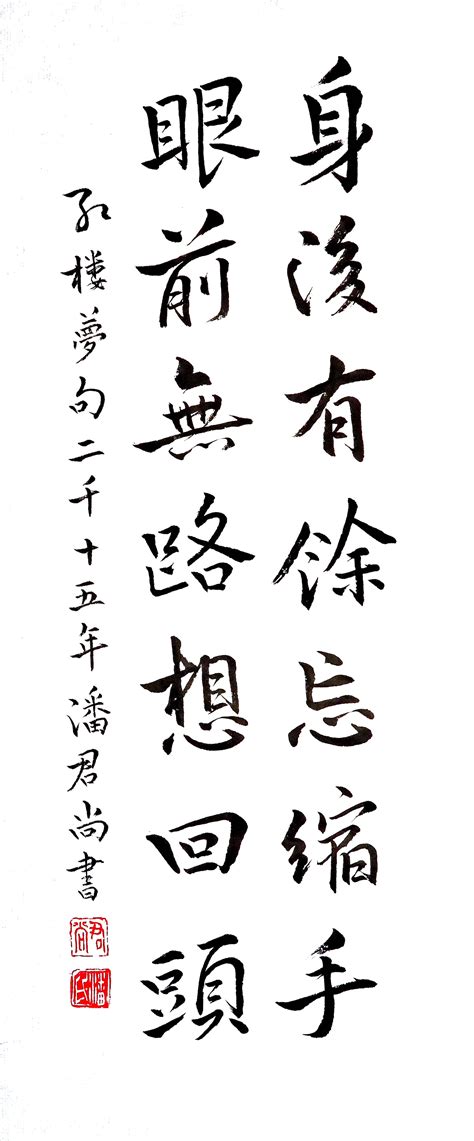 身後有餘忘縮手
眼前無路想回頭
紅楼夢句二千十五年潘君尚書
君尚
潘氏